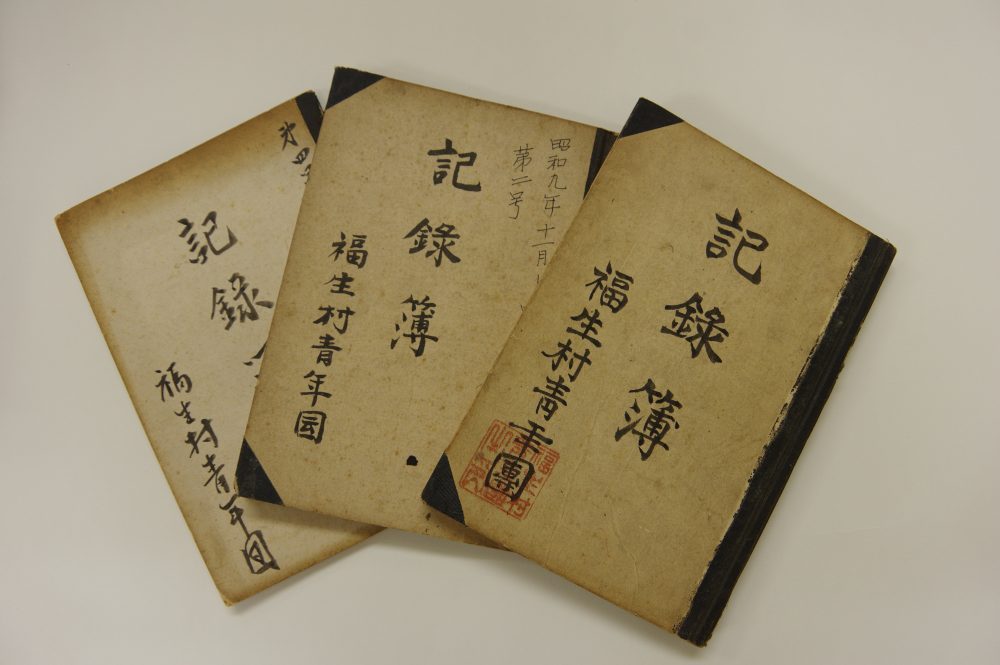 記錄簿
福生村青年團
昭和九年十一月
第二号
記錄簿
福生村青年团
第四
記錄
福生村青年団